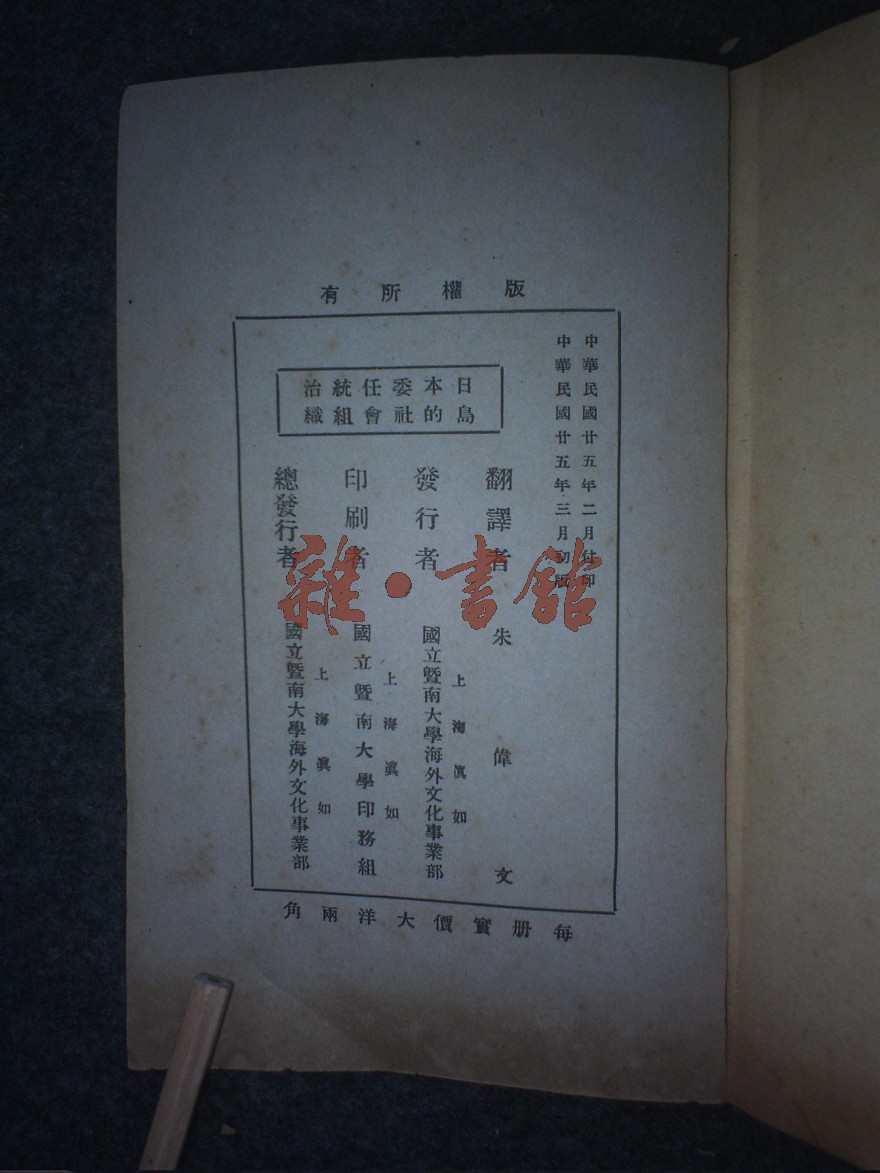 版權所有
中華民國廿五年二月付印
中華民國廿五年三月初版
日本委任統治
島的社會組織
翻譯者 朱偉文
發行者 上海眞如
國立暨南大學海外文化事業部
印刷者 上海眞如
國立暨南大學印務組
總發行者 上海眞如
國立暨南大學海外文化事業部
每册實價大洋兩角
雜·書館